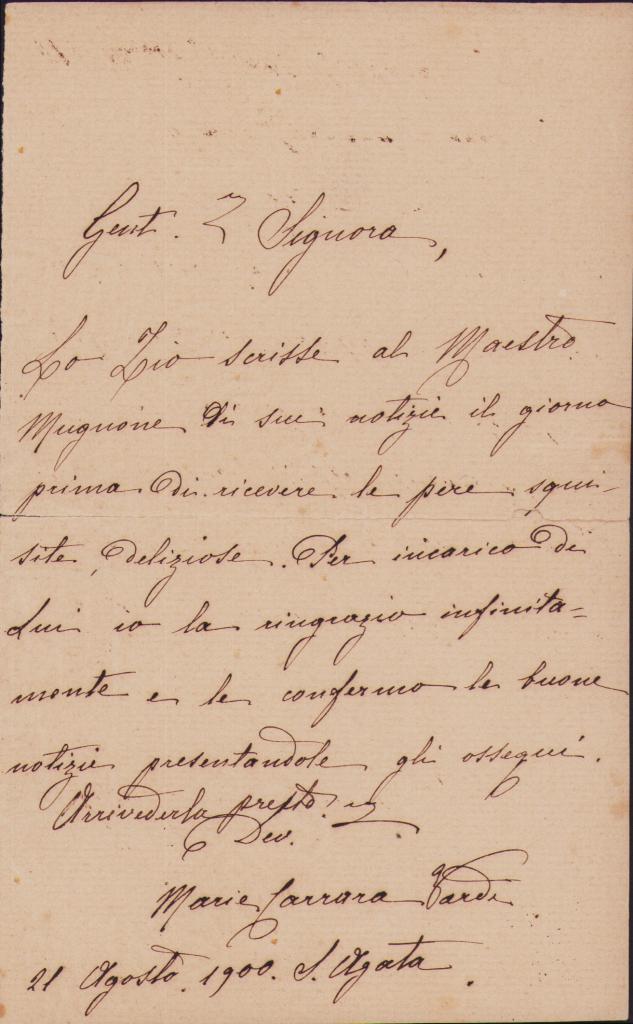 Gent. Signora,
Lo Zio scrisse al Maestro
Mugnone di sue notizie il giorno
prima di ricevere le pere squi-
site, deliziose. Per incarico di
Lui io la ringrazio infinita=
mente e le confermo le buone
notizie presentandole gli ossequi.
Arrivederla presto.
Dev.
Maria Carrara Verdi
21 Agosto. 1900. S. Agata.